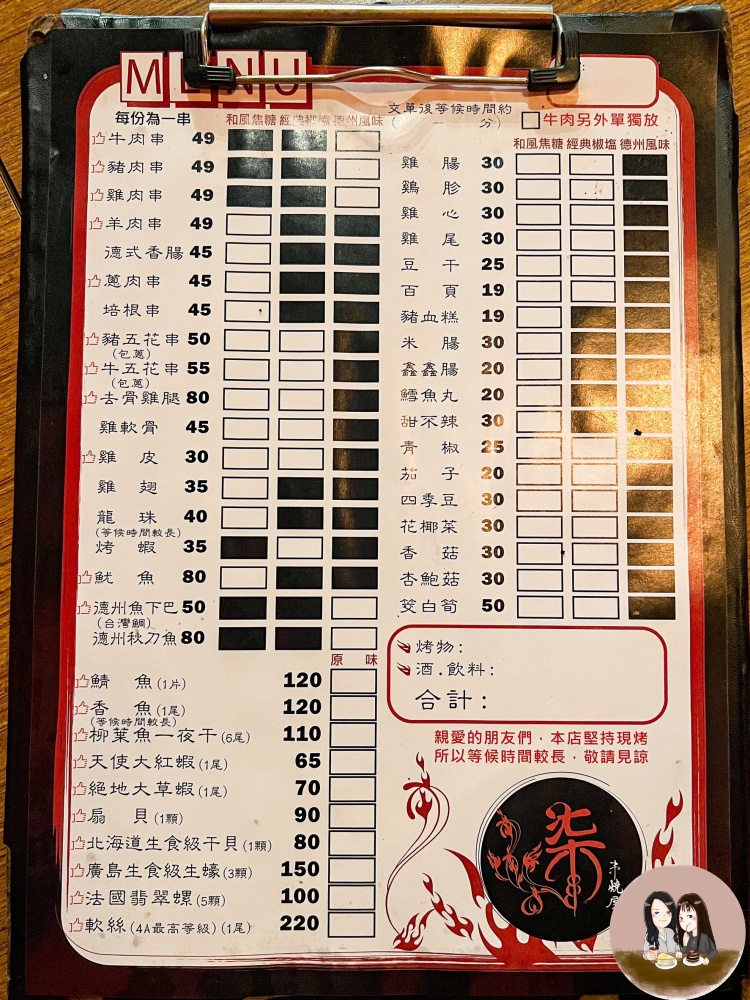 MENU
每份為一串
和風焦糖 經典椒塩 德州風味
牛肉串 49
豬肉串 49
雞肉串 49
羊肉串 49
德式香腸 45
蔥肉串 45
培根串 45
豬五花串 50
(包蔥)
牛五花串 55
(包蔥)
去骨雞腿 80
雞軟骨 45
雞皮 30
雞翅 35
龍珠 40
(等候時間較長)
烤蝦 35
魷魚 80
德州魚下巴 50
(台灣鯛)
德州秋刀魚 80
原味
鯖魚(1片) 120
香魚(1尾) 120
(等候時間較長)
柳葉魚一夜干(6尾) 110
天使大紅蝦(1尾) 65
絕地大草蝦(1尾) 70
扇貝(1顆) 90
北海道生食級干貝(1顆) 80
廣島生食級生蠔(3顆) 150
法國翡翠螺(5顆) 100
軟絲(4A最高等級)(1尾) 220
交單後等候時間約
( 分)
牛肉另外單獨放
和風焦糖 經典椒塩 德州風味
雞腸 30
鷄胗 30
雞心 30
雞尾 30
豆干 25
百頁 19
豬血糕 19
米腸 30
鑫鑫腸 20
鱈魚丸 20
甜不辣 30
青椒 25
茄子 20
四季豆 30
花椰菜 30
香菇 30
杏鮑菇 30
筊白筍 50
烤物:
酒.飲料:
合計:
親愛的朋友們，本店堅持現烤
所以等候時間較長，敬請見諒
柒
串燒屋